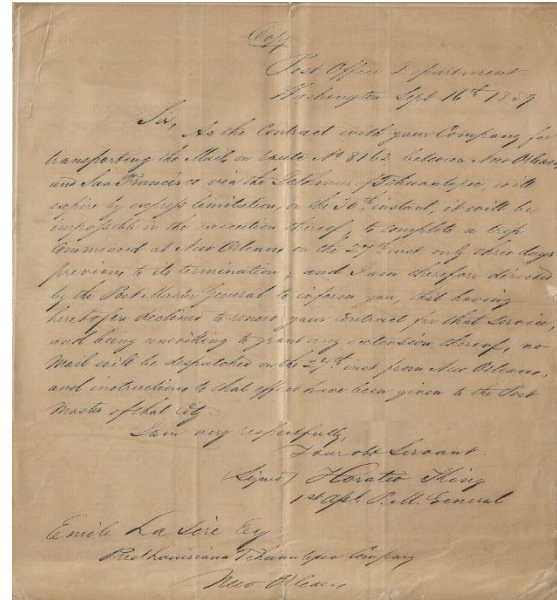 Copy
Post Office Department
Washington Sept 16th 1859
Sir,
As the Contract with your Company for
transporting the Mail on route No 8162, between New Orleans
and San Francisco via the Isthmus of Tehuantepec, will
expire by express limitation, on the 30th instant, it will be
impossible in the execution thereof, to complete a trip
Commenced at New Orleans on the 27th inst only three days
previous to its termination; and I am therefore directed
by the Post Master General to inform you, that having
heretofore declined to renew your Contract for that Service,
and being unwilling to grant any extension thereof, no
Mail will be despatched on the 27th inst from New Orleans,
and instructions to that effect have been given to the Post
Master of that City
I am very respectfully,
Your obt Servant
(Signed) Horatio King
1st Asst P. M. General
Emile La Sére Esq
Prest Louisiana Tehuantepec Company
New Orleans